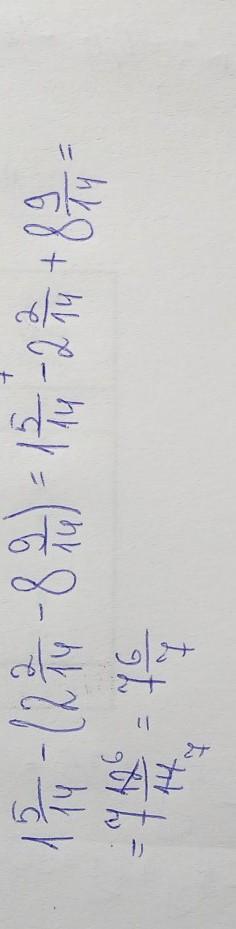 1 5/14 - (2 2/14 - 8 9/14) = 1 5/14 - 2 2/14 + 8 9/14 =
= 7 12/14 = 7 6/7